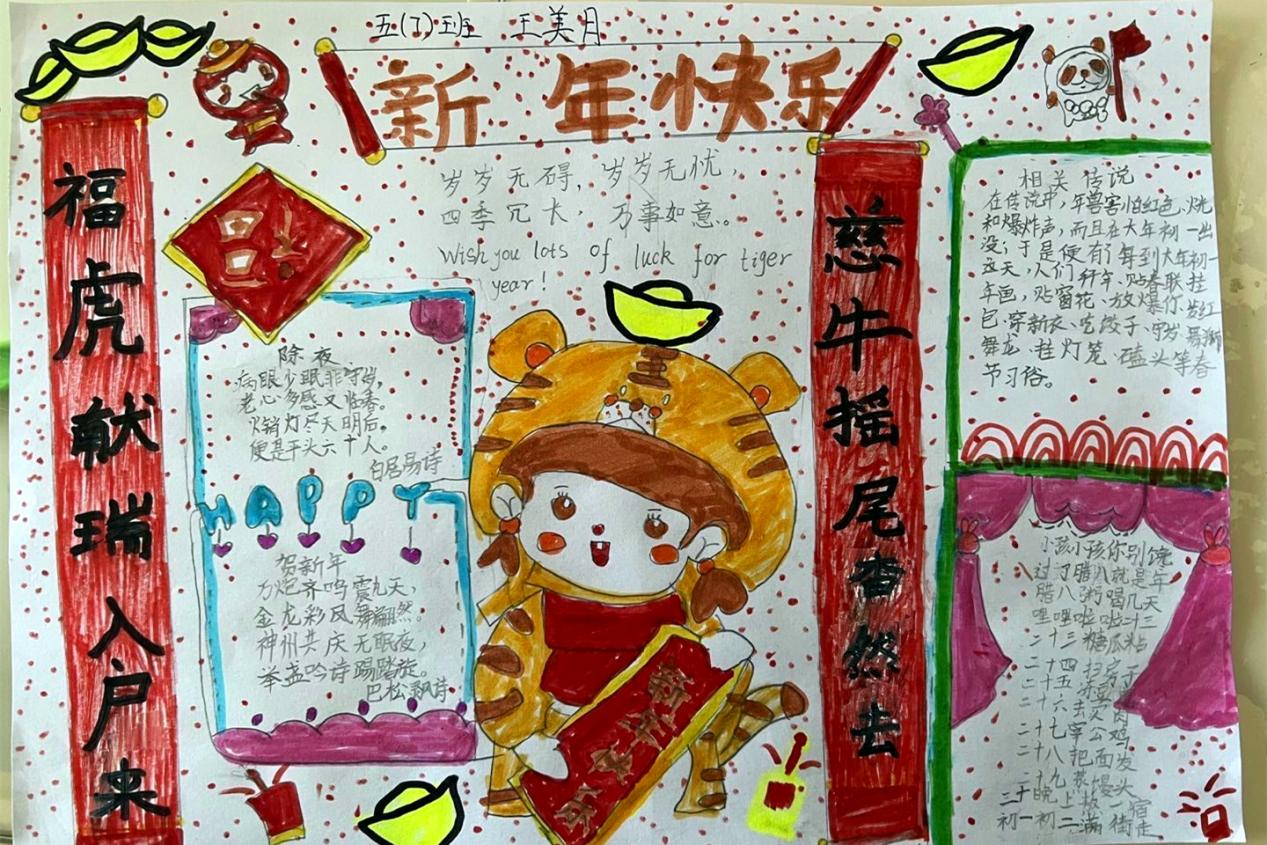 五(1)班 王美月
新年快乐
福虎献瑞入户来
慈牛摇尾杳然去
岁岁无碍，岁岁无忧，
四季冗长，万事如意。
Wish you lots of luck for tiger
year!
除夜
病眼少眠非守岁，
老心多感又临春。
火销灯尽天明后，
便是平头六十人。
白居易诗
HAPPY
贺新年
力炮齐鸣震九天，
金龙彩凤舞翩然。
神州共庆无眠夜，
举盏吟诗踢踏旋。
巴松飘诗
新年快乐
相关传说
在传说中，年兽害怕红色、火光
和爆炸声，而且在大年初一出
没；于是便有了每到大年初一
这天，人们拜年、贴春联、挂
年画，贴窗花、放爆仗、发红
包、穿新衣、吃饺子、守岁、舞狮
舞龙、挂灯笼、磕头等春
节习俗。
小孩小孩你别馋
过了腊八就是年
腊八粥喝几天
哩哩啦啦二十三
二十三糖瓜粘
二十四扫房子
二十五
二十六去买肉
二十七宰公鸡
二十八把面发
二十九蒸馒头
三十晚上熬一宿
初一初二满街走